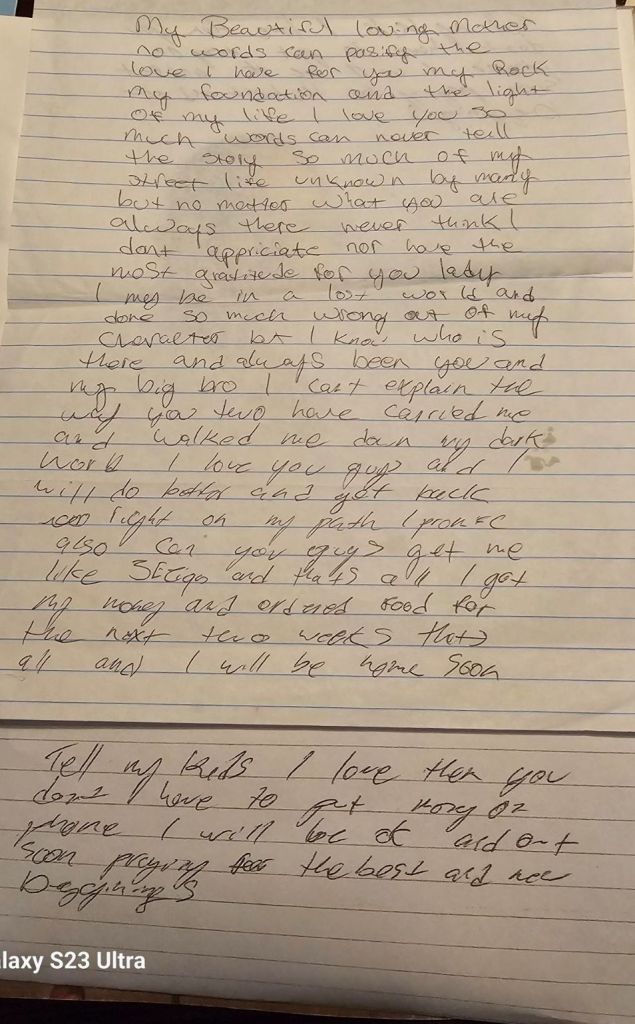 My Beautiful loving Mother
no words can pasify the
love I have for you my Rock
my foundation and the light
of my life I love you so
much words can never tell
the story so much of my
street life unknown by many
but no matter what you are
always there never think I
dont appriciate nor have the
most gratitude for you lady
I may be in a lost world and
done so much wrong out of my
character but I know who is
there and always been you and
my big bro I cant explain the
way you two have carried me
and walked me down my dark
world I love you guys and I
will do better and get back
right on my path I
also can you guys get me
like and thats all I got
my money and ordered food for
the next two weeks thats
all and I will be home soon
Tell my kids I love them you
dont have to put money on
phone I will be ok and out
soon praying for the best and new
Begginings
laxy S23 Ultra